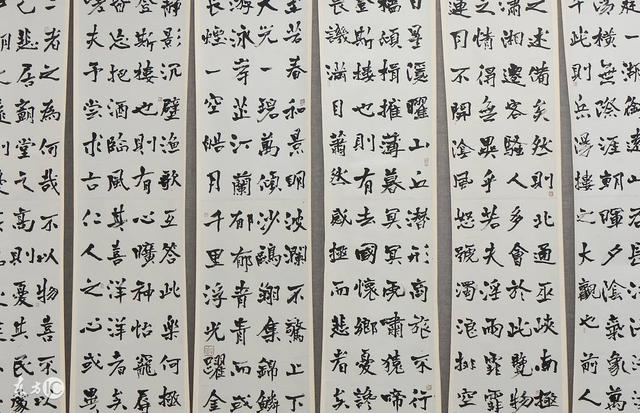 湯橫無際涯朝暉夕陰氣象萬
此則岳陽樓之大觀也前人
之述備矣然則北通巫峽南極
瀟湘遷客騷人多會於此覽物
之情得無異乎若夫淫雨霏
連月不開陰風怒號濁浪排空
星隱曜山丘潛形商旅不行
檣傾楫摧薄暮冥冥虎嘯猿啼
登斯樓也則有去國懷鄉憂讒
畏譏滿目蕭然感極而悲者矣
至若春和景明波瀾不驚上下
天光一碧萬傾沙鷗翔集錦鱗
游泳岸芷汀蘭郁郁青青而或
長煙一空皓月千里浮光躍金
靜影沉璧漁歌互答此樂何極
登斯樓也則有心曠神怡寵辱
皆忘把酒臨風其喜洋洋者矣
夫予嘗求古仁人之心或異
二者之為何哉不以物喜不以
己悲居廟堂之高則憂其民
东方IC